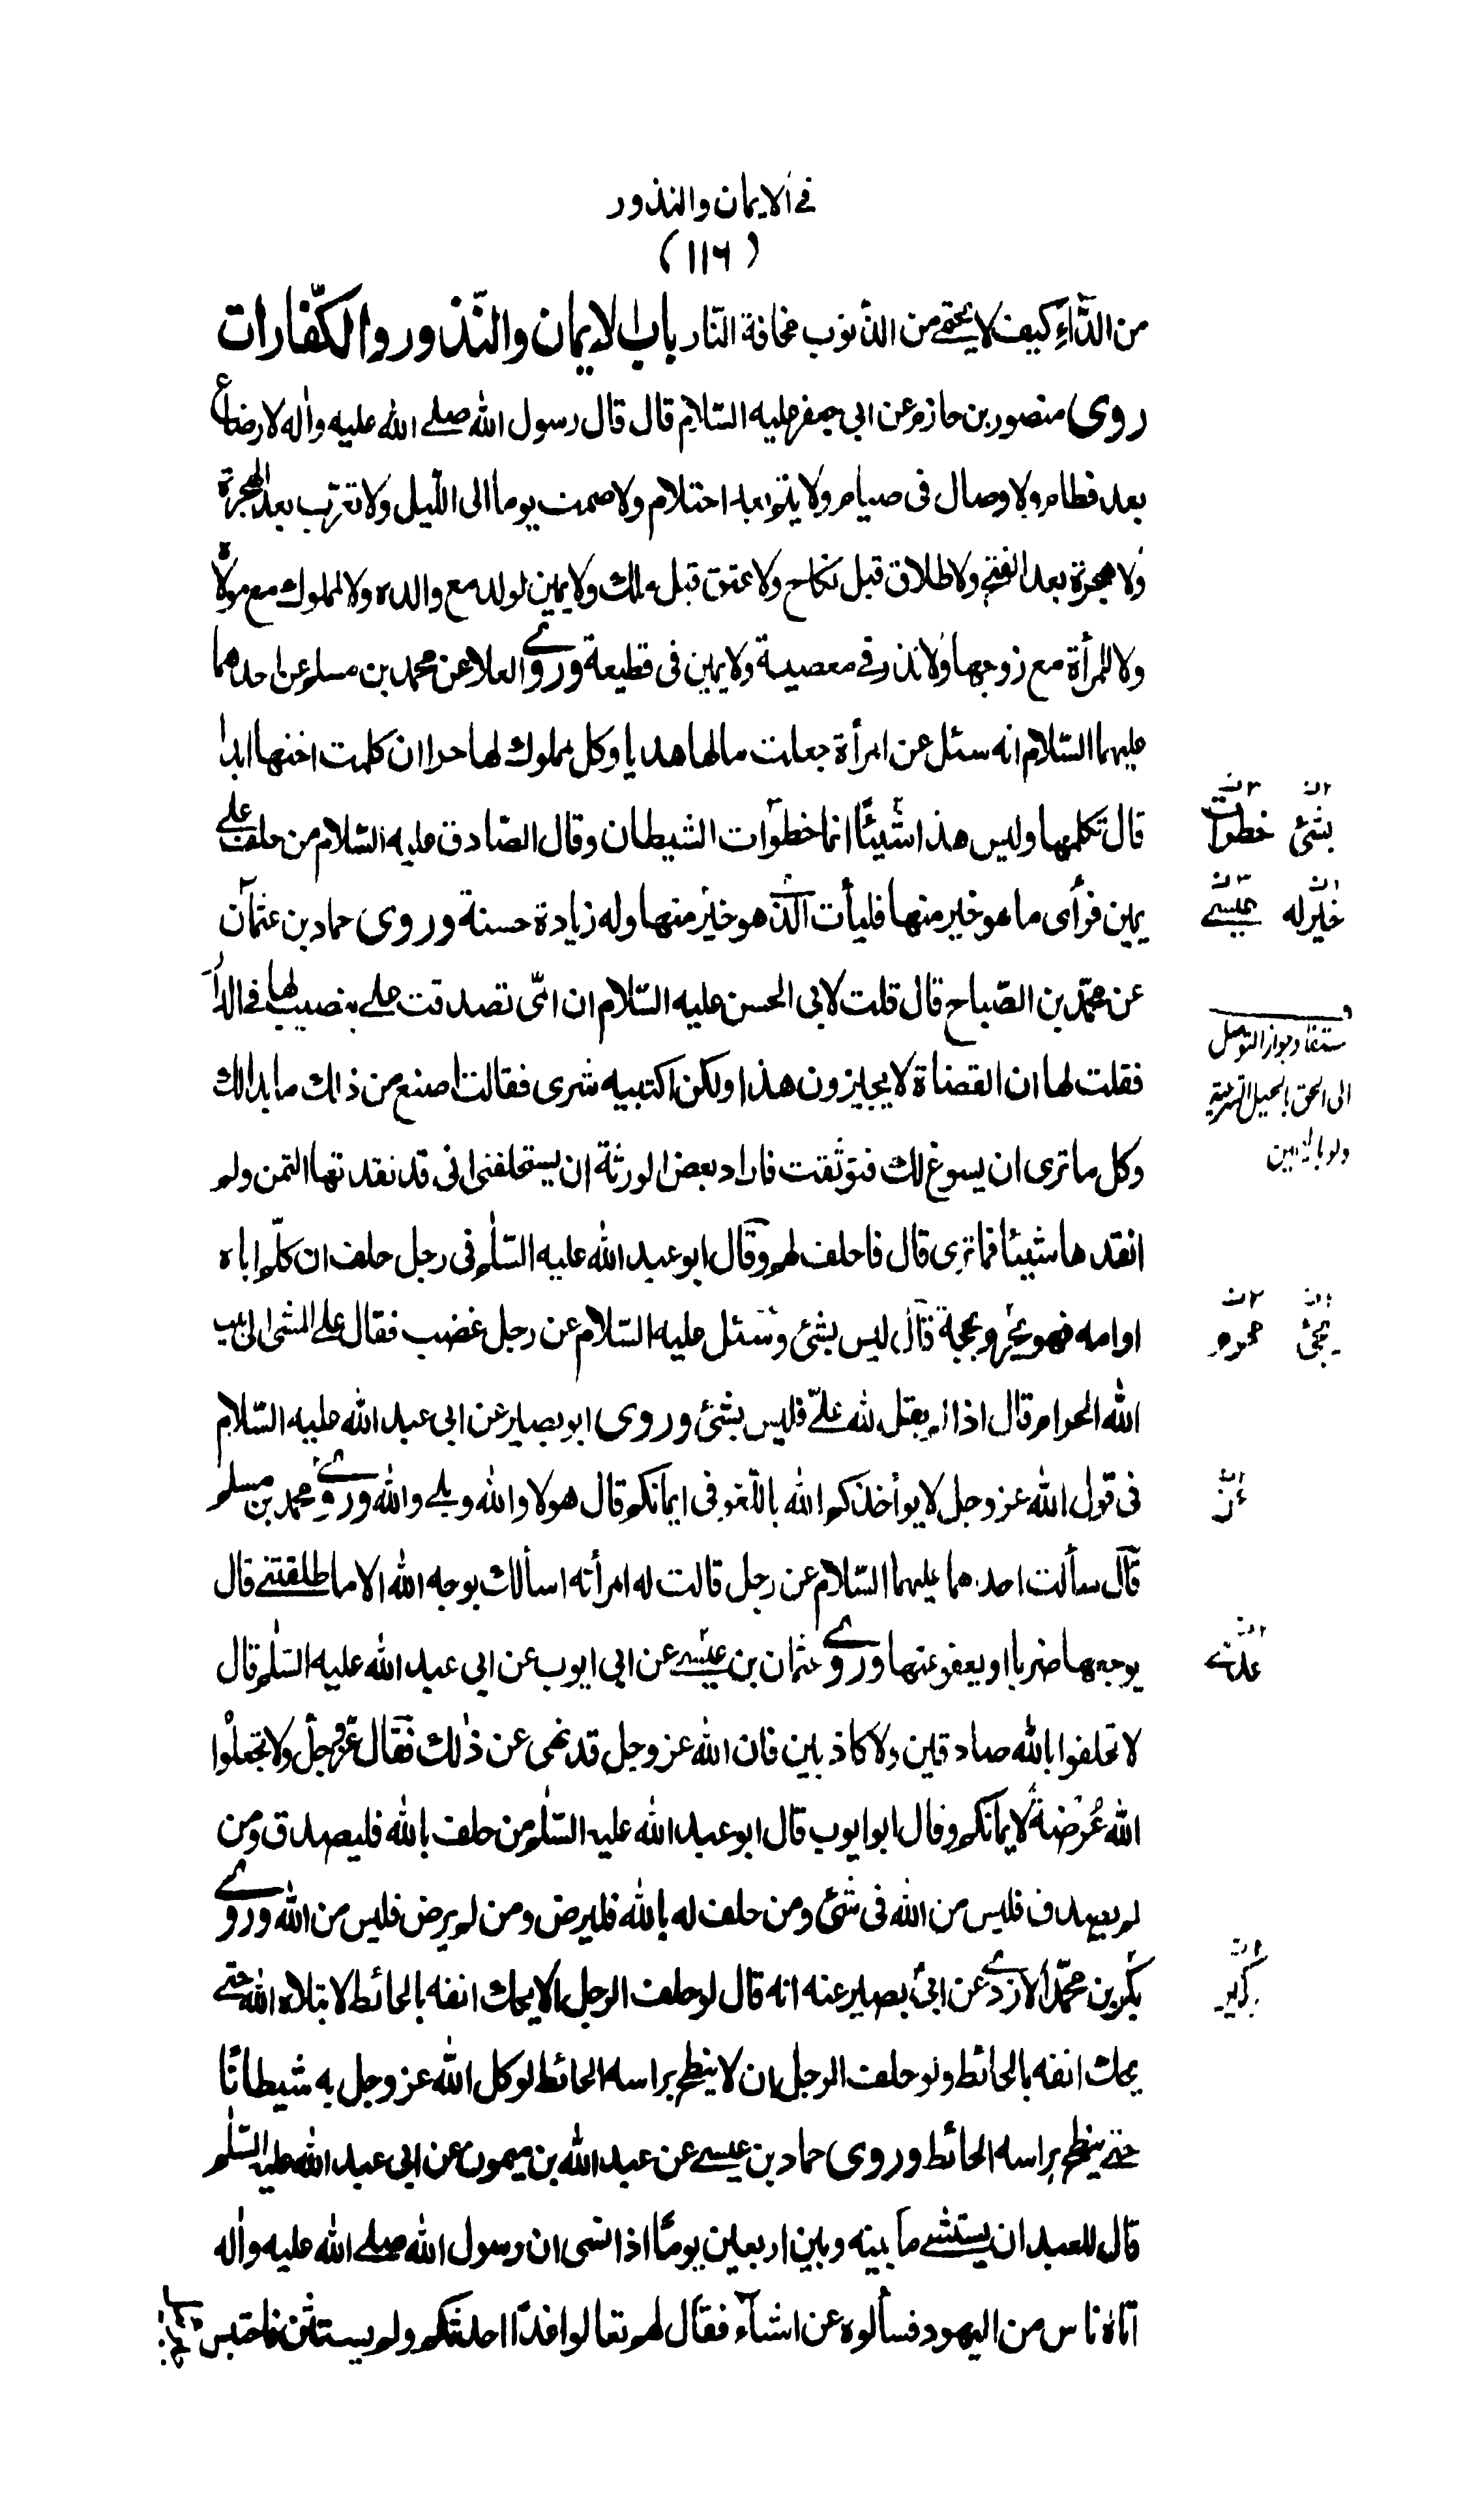 في الايمان والنذور
(١١٦)
من الدّاءِ كيف لا يحتمي من الذنوب مخافة النّار باب الايمان والنّذور والكفّارات
روى منصور بن حازم عن ابي جعفر عليه السّلام قال قال رسول الله صلى الله عليه واله لا رضاع
بعد فطام ولا وصال في صيام ولا يتم بعد احتلام ولا صمت يوما الى اللّيل ولا تعرّب بعد الهجرة
ولا هجرة بعد الفتح ولا طلاق قبل نكاح ولا عتق قبل ملك ولا يمين لولد مع والده ولا لمملوك مع مولاه
ولا للمرأة مع زوجها ولا نذر في معصية ولا يمين في قطيعة وروى العلا عن محمد بن مسلم عن احدهما
عليهما السّلام انه سئل عن امرأة جعلت مالها هديا وكل مملوك لها حرا ان كلمت اختها ابدا
قال تكلمها وليس هذا شيئًا انما خطوات الشيطان وقال الصّادق عليه السّلام من حلف على
يمين فرأى ما هو خير منها فليأت الّذي هو خير منها وله زيادة حسنة وروى حماد بن عثمان
عن محمّد بن الصّباح قال قلت لابي الحسن عليه السّلام ان امّي تصدقت علي بنصيب لها في الدار
فقلت لها ان القضاة لا يجيزون هذا ولكن اكتبيه شرى فقالت اصنع من ذلك ما بدا لك
وكل ما ترى ان يسوغ لك فتوثقت فاراد بعض الورثة ان يستحلفني اني قد نقدتها الثمن ولم
انقدها شيئا فما ترى قال فاحلف لهم وقال ابو عبد الله عليه السّلم في رجل حلف ان كلّم اباه
او امه فهو يحرم بحجة قال ليس بشئ وسئل عليه السّلام عن رجل غضب فقال علي المشي الى بيت
الله الحرام قال اذا لم يقل لله عليّ فليس بشئ وروى ابو بصير عن ابي عبد الله عليه السّلام
في قول الله عز وجل لا يواخذكم الله باللّغو في ايمانكم قال هو لا والله وبلى والله وروى محمد بن مسلم
قال سألت احدهما عليهما السّلام عن رجل قالت له امرأته اسألك بوجه الله الا ما طلقتني قال
يوجعها ضربا او يعفو عنها وروى عثمان بن عيسى عن ابي ايوب عن ابي عبد الله عليه السّلم قال
لا تحلفوا بالله صادقين ولا كاذبين فان الله عز وجل قد نهى عن ذلك فقال عز وجل ولا تجعلوا
الله عُرْضة لايمانكم وقال ابو ايوب قال ابو عبد الله عليه السّلم من حلف بالله فليصدق ومن
لم يصدق فليس من الله في شئ ومن حلف له بالله فليرض ومن لم يرض فليس من الله وروى
بكر بن محمّد الازدي عن ابي بصير عنه انه قال لو حلف الرجل الا يحك انفه بالحائط لابتلاه الله حتى
يحك انفه بالحائط ولو حلف الرجل ان لا ينطح براسه الحائط لوكل الله عز وجل به شيطانًا
حتى ينطح براسه الحائط وروى حماد بن عيسى عن عبد الله بن ميمون عن ابي عبد الله عليه السّلم
قال للعبد ان يستثني ما بينه وبين اربعين يومًا اذا نسى ان رسول الله صلى الله عليه واله
اتاه ناس من اليهود فسألوه عن اشياء فقال لهم تعالوا غدًا احدثكم ولم يستثن فاحتبس
بشئ خطوات
خير له عيسى
يستفاد جواز التوصل
الى الحق بالحيل الشرعية
ولو باليمين